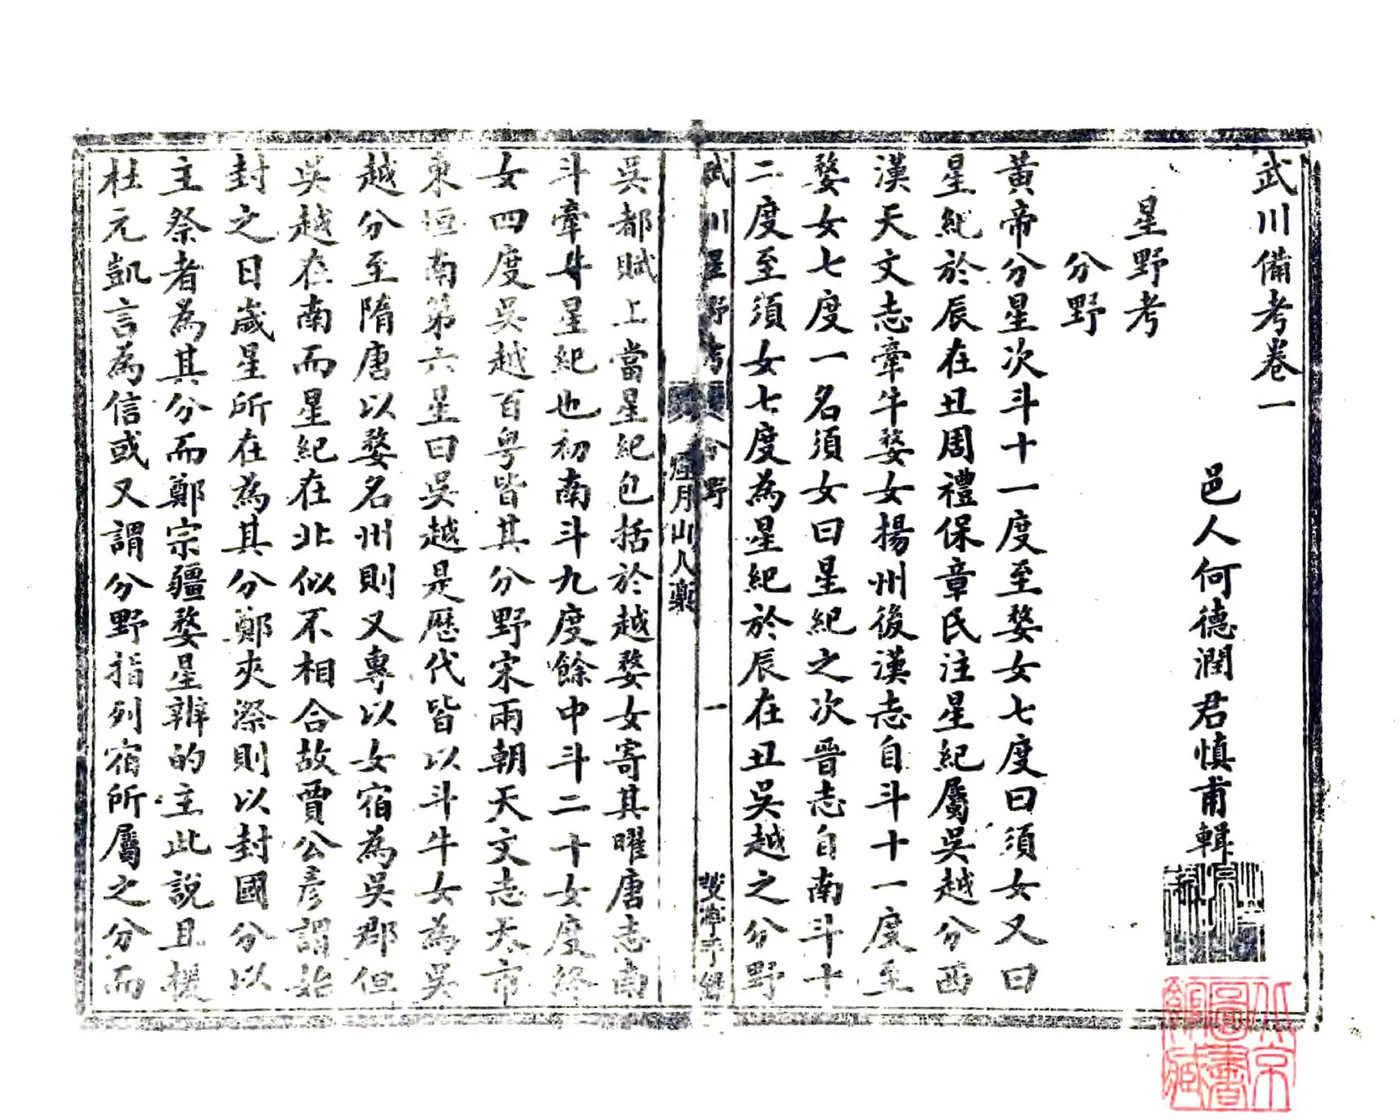 武川備考卷一
邑人何德潤君慎甫輯
星野考
分野
黃帝分星次斗十一度至婺女七度曰須女又曰
星紀於辰在丑周禮保章氏注星紀屬吳越分西
漢天文志牽牛婺女揚州後漢志自斗十一度至
婺女七度一名須女曰星紀之次晉志自南斗十
二度至須女七度為星紀於辰在丑吳越之分野
武川星野考
分野
一
雙溪手錄
痊月山人藁
吳都賦上當星紀包括於越婺女寄其曜唐志南
斗牽牛星紀也初南斗九度餘中斗二十女度終
女四度吳越百粵皆其分野宋兩朝天文志天市
東垣南第六星曰吳越是歷代皆以斗牛女為吳
越分至隋唐以婺名州則又專以女宿為吳郡但
吳越在南而星紀在北似不相合故賈公彥謂始
封之日歲星所在為其分鄭夾漈則以封國分以
主祭者為其分而鄭宗疆婺星辨的主此說且援
杜元凱言為信或又謂分野指列宿所屬之分而
北京圖書館藏